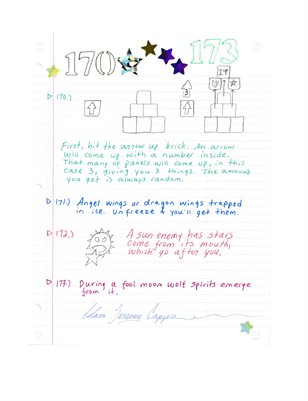 170 173
170.)
3
First, hit the arrow up brick. An arrow
will come up with a number inside.
That many of panels will come up, in this
case 3, giving you 3 things. The amount
you get is always random.
171.) Angel wings or dragon wings trapped
in ice. Unfreeze & you'll get them.
172.) A sun enemy has stars
come from its mouth,
which go after you.
173.) During a fool moon wolf spirits emerge
from it.
Jeremy